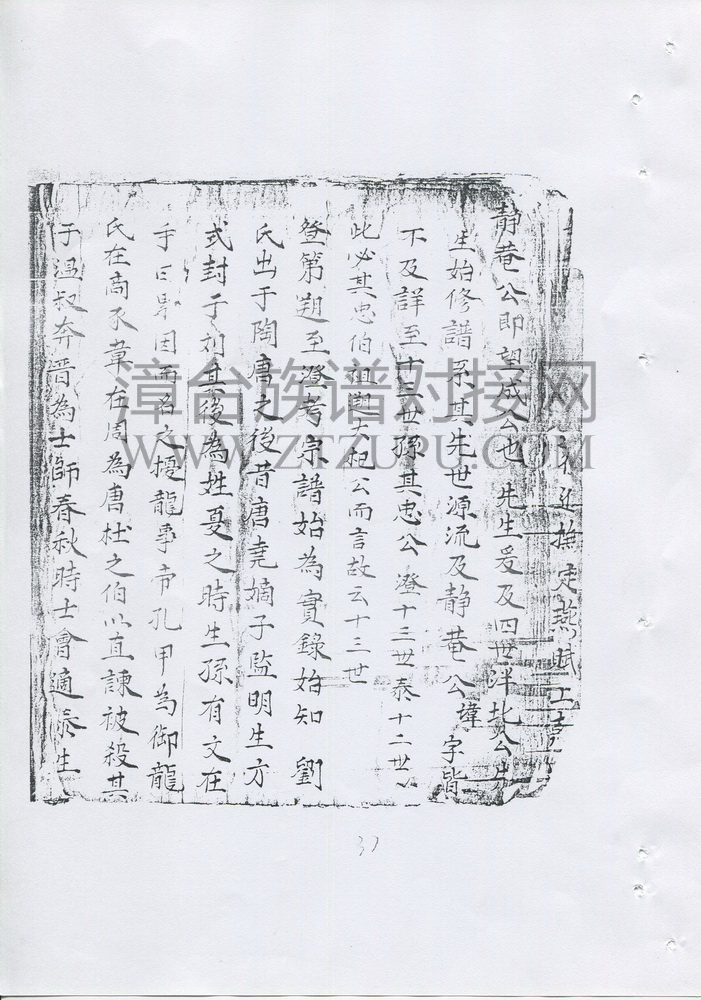 迋撫定燕賦上
靜菴公即望成公也先生爰及四世泮北公先
生始修譜系其先世源流及靜菴公諱字皆
不及詳至十三世孫其忠公澄十三世泰十二世
此必其忠伯祖公而言故云十三世
登第朔至澄考宗譜始為實錄始知劉
氏出于陶唐之後昔唐堯嫡子監明生
式封于刘其後為姓夏之時生孫有文在
手曰累因而名之擾龍事帝孔甲為御龍
氏在商豕韋在周為唐杜之伯以直諫被殺其
子溫叔奔晋為士師春秋時士會適秦生
漳台族谱对接网
WWW.ZTZUPU.COM
37